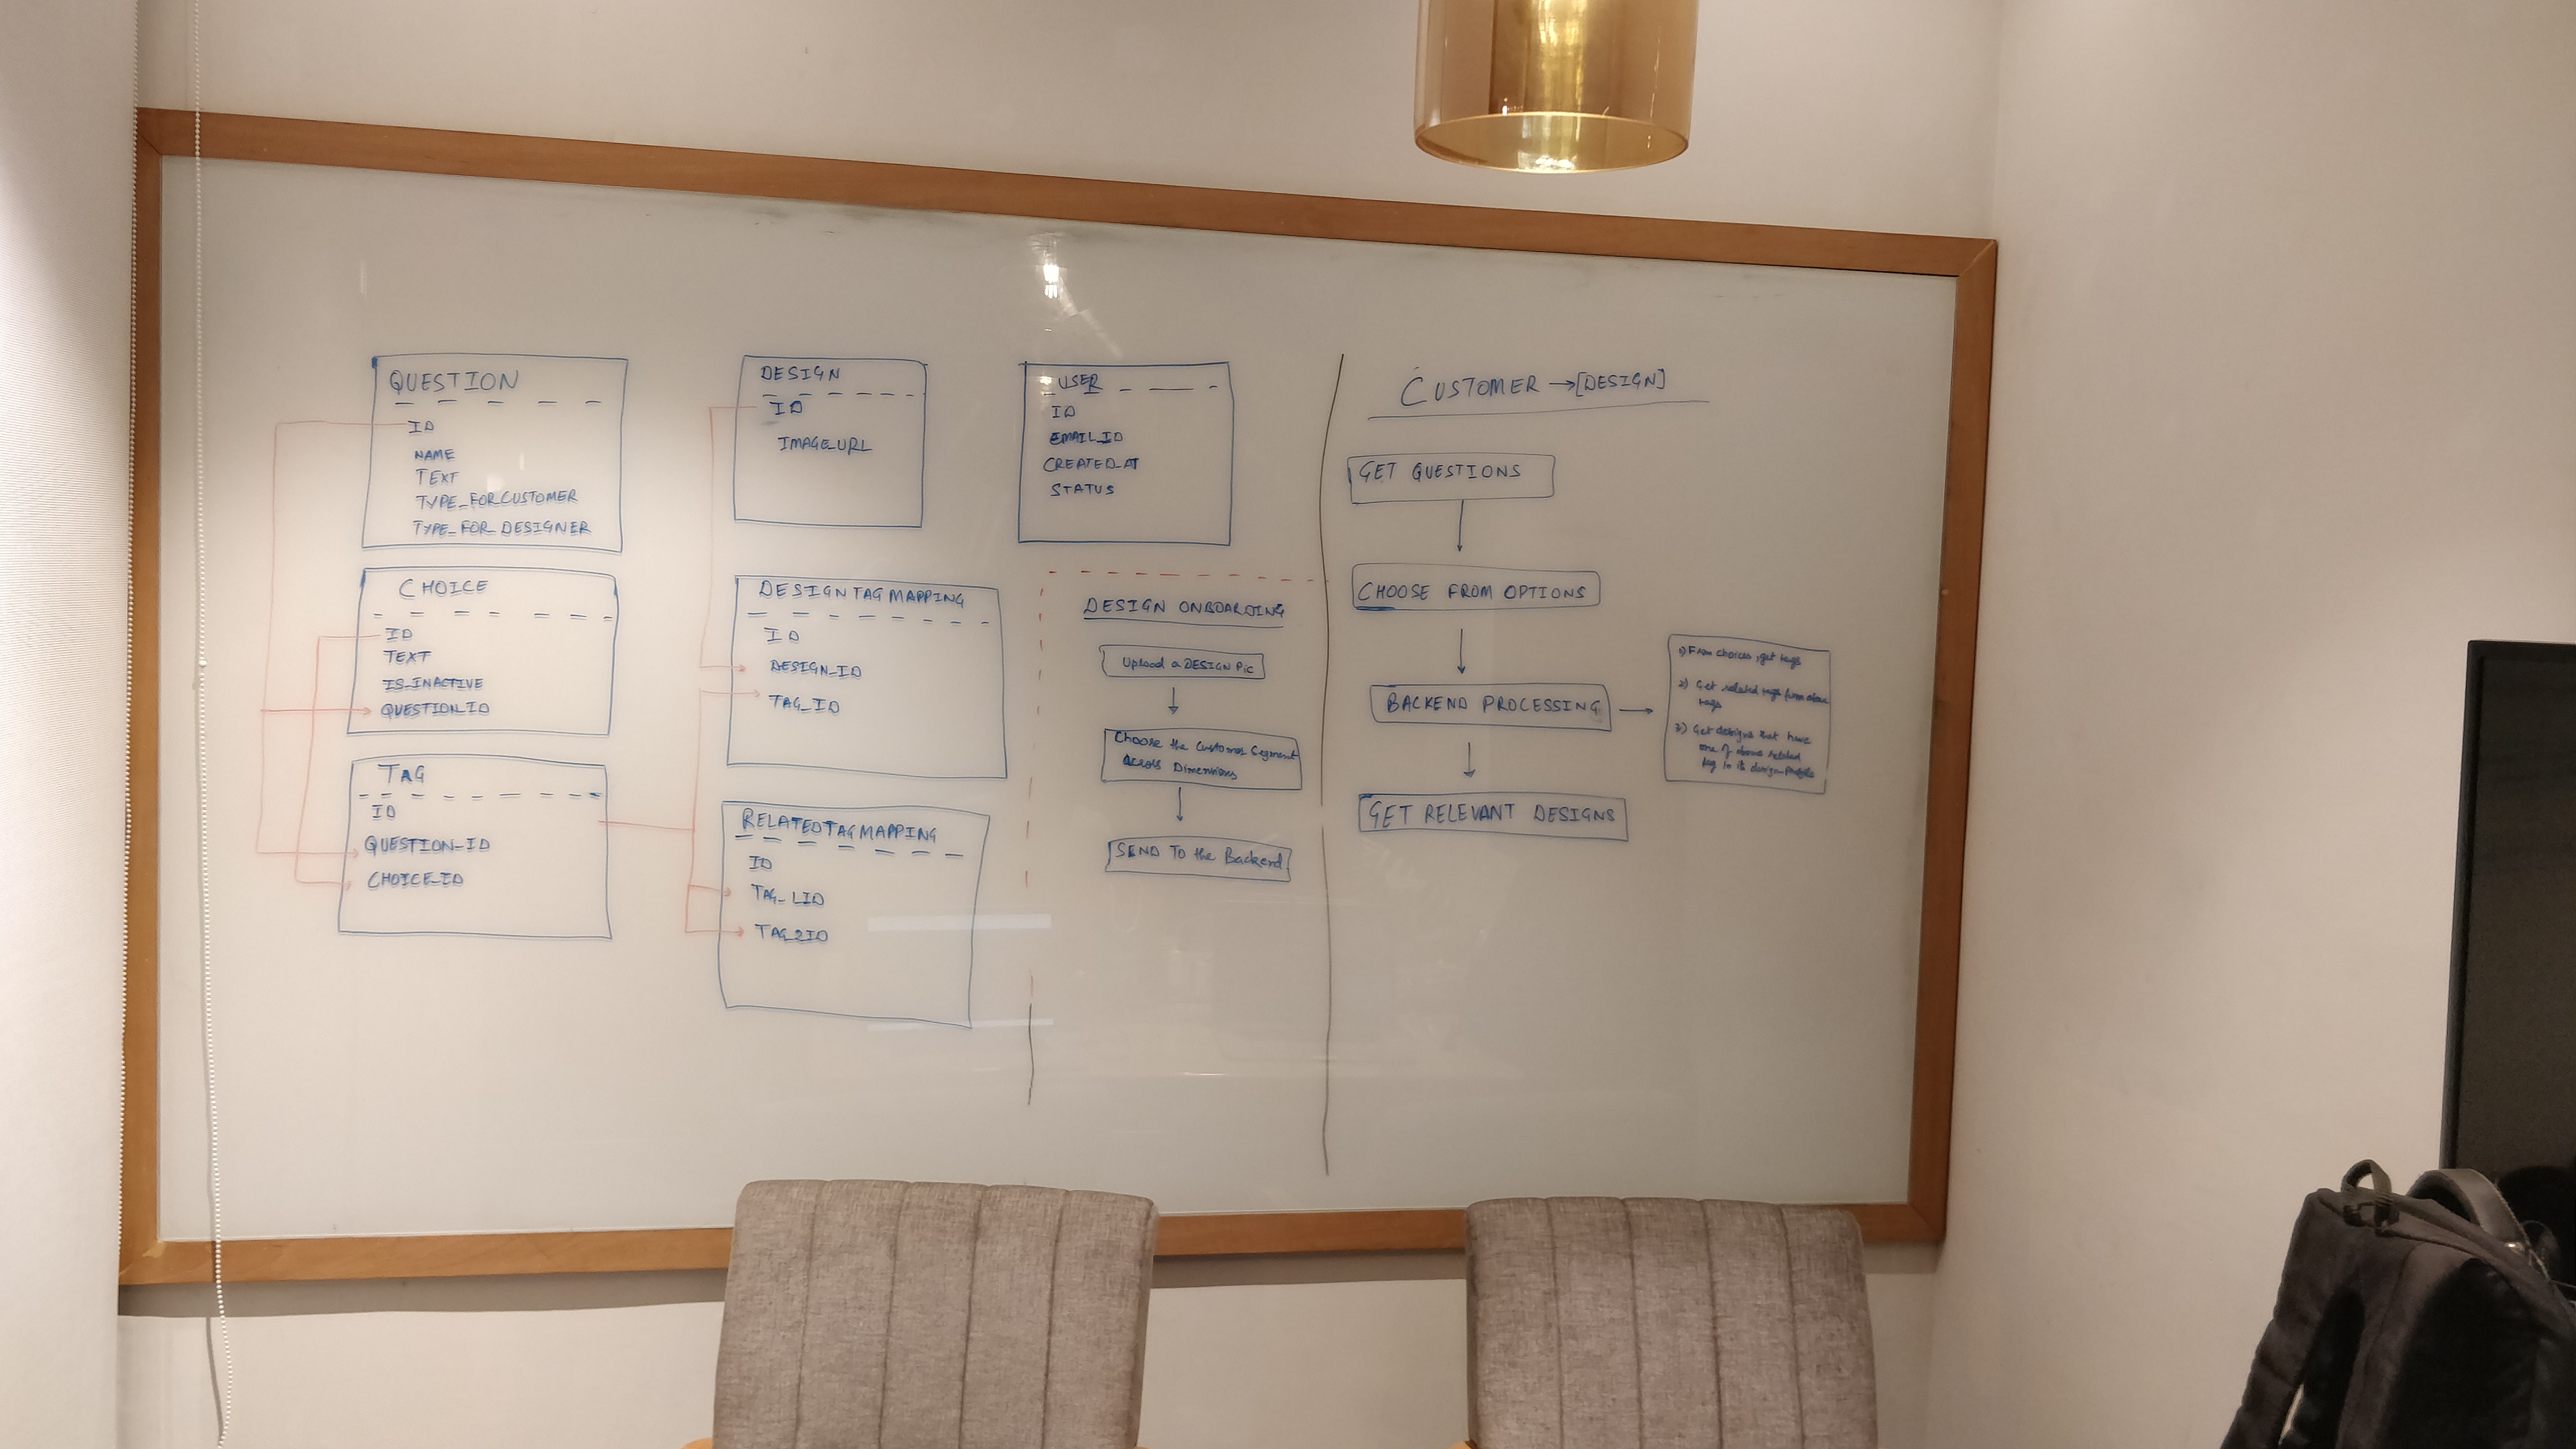 QUESTION
ID
NAME
TEXT
TYPE_FORCUSTOMER
TYPE_FOR_DESIGNER
CHOICE
ID
TEXT
IS_INACTIVE
QUESTION_ID
TAG
ID
QUESTION_ID
CHOICE_ID
DESIGN
ID
IMAGE_URL
DESIGNTAGMAPPING
ID
DESIGN_ID
TAG_ID
RELATEDTAGMAPPING
ID
TAG_1_ID
TAG_2ID
USER
ID
EMAIL_ID
CREATED_AT
STATUS
DESIGN ONBOARDING
Upload a DESIGN Pic
Choose the Customer Segment
Across Dimensions
SEND To the Backend
CUSTOMER →[DESIGN]
GET QUESTIONS
CHOOSE FROM OPTIONS
BACKEND PROCESSING
1) From choices, get tags
2) Get related tags from above
tags
3) Get designs that have
one of above related
tag in its design-Profile
GET RELEVANT DESIGNS